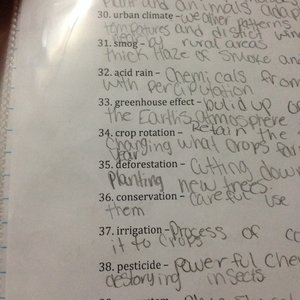 Plant and animals
30. urban climate - weather patterns
tempatures and distict wind
near by rural areas
31. smog - a
thick haze of smoke and
32. acid rain - Chemicals from
with percipatation
33. greenhouse effect - build up o
the Earth's atmosphere
34. crop rotation - Retain the
Changing what crops far
year
35. deforestation - Cutting down
Planting new trees.
36. conservation - careful use
them
37. irrigation - Process of c
it to crops
38. pesticide - Powerful che
destorying insects